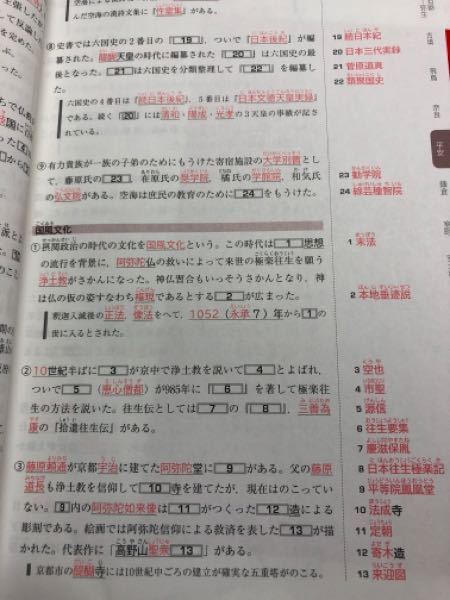 んだ空海の漢詩文集に『性霊集』がある。
⑧史書では六国史の2番目の『 19 』、ついで『日本後紀』が編
纂された。醍醐天皇の時代に編纂された『 20 』は六国史の最
後となった。 21 は六国史を分類整理して『 22 』を編集し
た。
六国史の4番目は『続日本後紀』、5番目は『日本文徳天皇実録』
である。続く『 20 』には清和・陽成・光孝の3天皇の事績が記さ
れている。
⑨有力貴族が一族の子弟のためにもうけた寄宿施設の大学別曹と
して、藤原氏の 23 、在原氏の奨学院、橘氏の学館院、和気氏
の弘文院がある。空海は庶民の教育のために 24 をもうけた。
国風文化
①摂関政治の時代の文化を国風文化という。この時代は 1 思想
の流行を背景に、阿弥陀仏の救いによって来世の極楽往生を願う
浄土教がさかんになった。神仏習合もいっそうさかんとなり、神
は仏の仮の姿すなわち権現であるとする 2 が広まった。
釈迦入滅後の正法、像法をへて、1052(永承7)年から 1 の
世に入るとされた。
②10世紀半ばに 3 が京中で浄土教を説いて 4 とよばれ、
ついで 5 (恵心僧都)が985年に『 6 』を著して極楽往
生の方法を説いた。往生伝としては 7 の『 8 』、三善為
康の『拾遺往生伝』がある。
③藤原頼通が京都宇治に建てた阿弥陀堂に 9 がある。父の藤原
道長も浄土教を信仰して 10 寺を建てたが、現在はのこってい
ない。 9 内の阿弥陀如来像は 11 がつくった 12 造による
彫刻である。絵画では阿弥陀信仰による救済を表した 13 が描
かれた。代表作に「高野山聖衆 13 」がある。
京都市の醍醐寺には10世紀中ごろの建立が確実な五重塔がのこる。
19 続日本紀
20 日本三代実録
21 菅原道真
22 類聚国史
23 勧学院
24 綜芸種智院
1 末法
2 本地垂迹説
3 空也
4 市聖
5 源信
6 往生要集
7 慶滋保胤
8 日本往生極楽記
9 平等院鳳凰堂
10 法成寺
11 定朝
12 寄木造
13 来迎図
古墳
飛鳥
奈良
平安
鎌倉